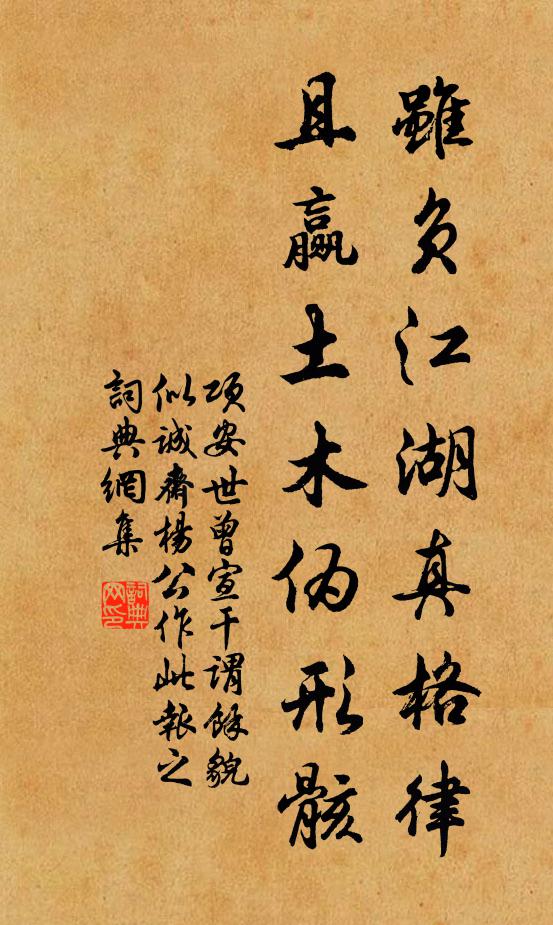 雖負江湖真格律
且贏土木偽形骸
項安世曾宣干謂餘貌
似誠齋楊公作此報之
詞典網集
詞典網印